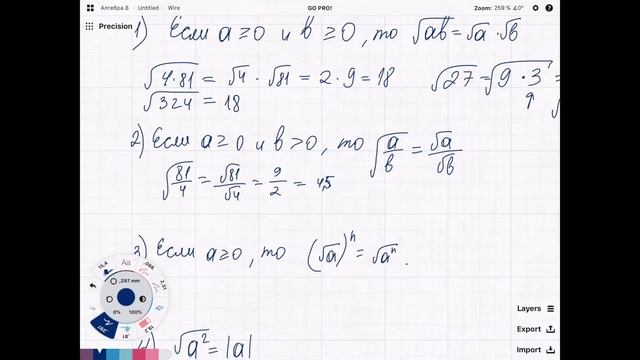 Алгебра 8 Untitled Wire
GO PRO!
Zoom: 259 % ∠0°
Precision
1) Если a ≥ 0 и b ≥ 0, то √ab = √a · √b
√4·81 = √4 · √81 = 2 · 9 = 18
√27 = √9 · 3 =
√324 = 18
2) Если a ≥ 0 и b > 0, то √a/b = √a/√b
√81/4 = √81/√4 = 9/2 = 4,5
3) Если a ≥ 0, то (√a)ⁿ = √aⁿ.
Aa
,297 mm
0% 100%
Layers
Export
Import
√a² = |a|